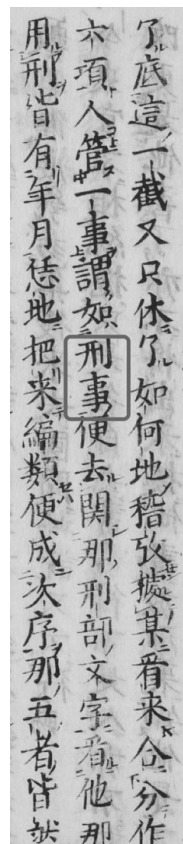 了底這一截又只休了如何地稽攷據某看来合分作
六項人管一事謂如刑事便去関那刑部文字看他那
用刑皆有年月恁地把来編類便成次序那五者皆然